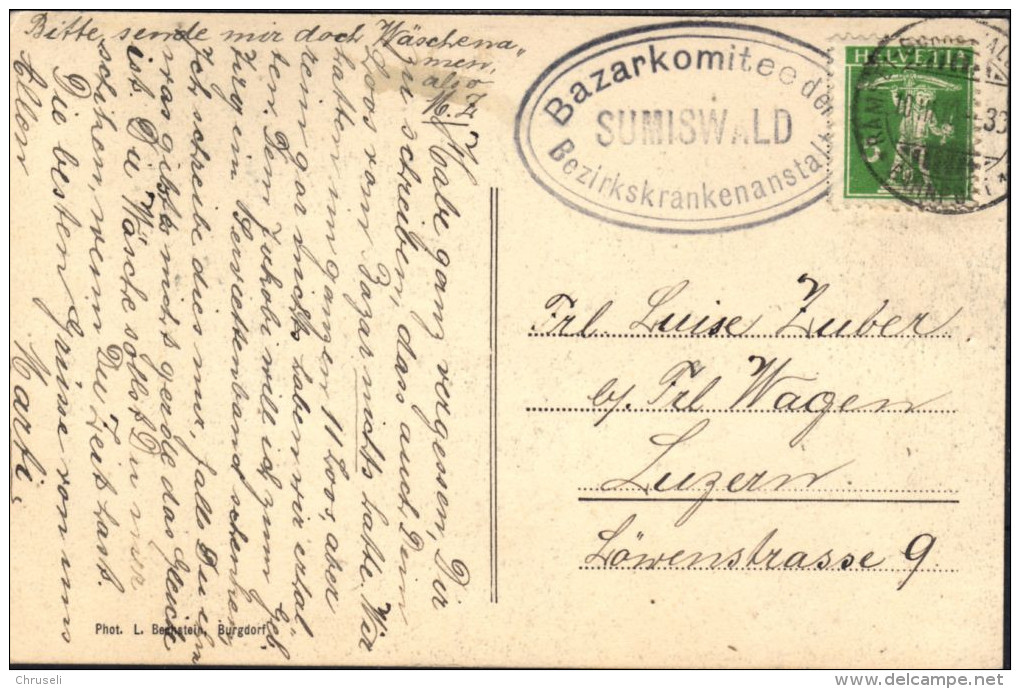 Bitte, sende mir doch Wäschena-
men,
also
16. Z
Habe ganz vergessen, Dir
zu schreiben, dass auch Dein
Loos vom Bazar nichts hatte. Wir
hatten im ganzen 11 Loos, aber
rein gar nichts haben wir erhal
ten. Dem Jakobi will ich zum Geb.
tzg ein Serviettenband schenken,
Ich schreibe dies nur, falls Du ihm
was gibst nicht gerade das Gleich
ist. Die Wäsche sollst Du nur
schicken, wenn Du Zeit hast.
Die besten Grüsse von uns
Allen
Marti.
Bazarkomitee der
SUMISWALD
Bezirkskrankenanstalt
HELVETIA
5
Frl. Luise Zuber
b/ Frl Wagen
Luzern
Löwenstrasse 9.
Phot. L. Bechstein, Burgdorf
© Chruseli
delcampe.net